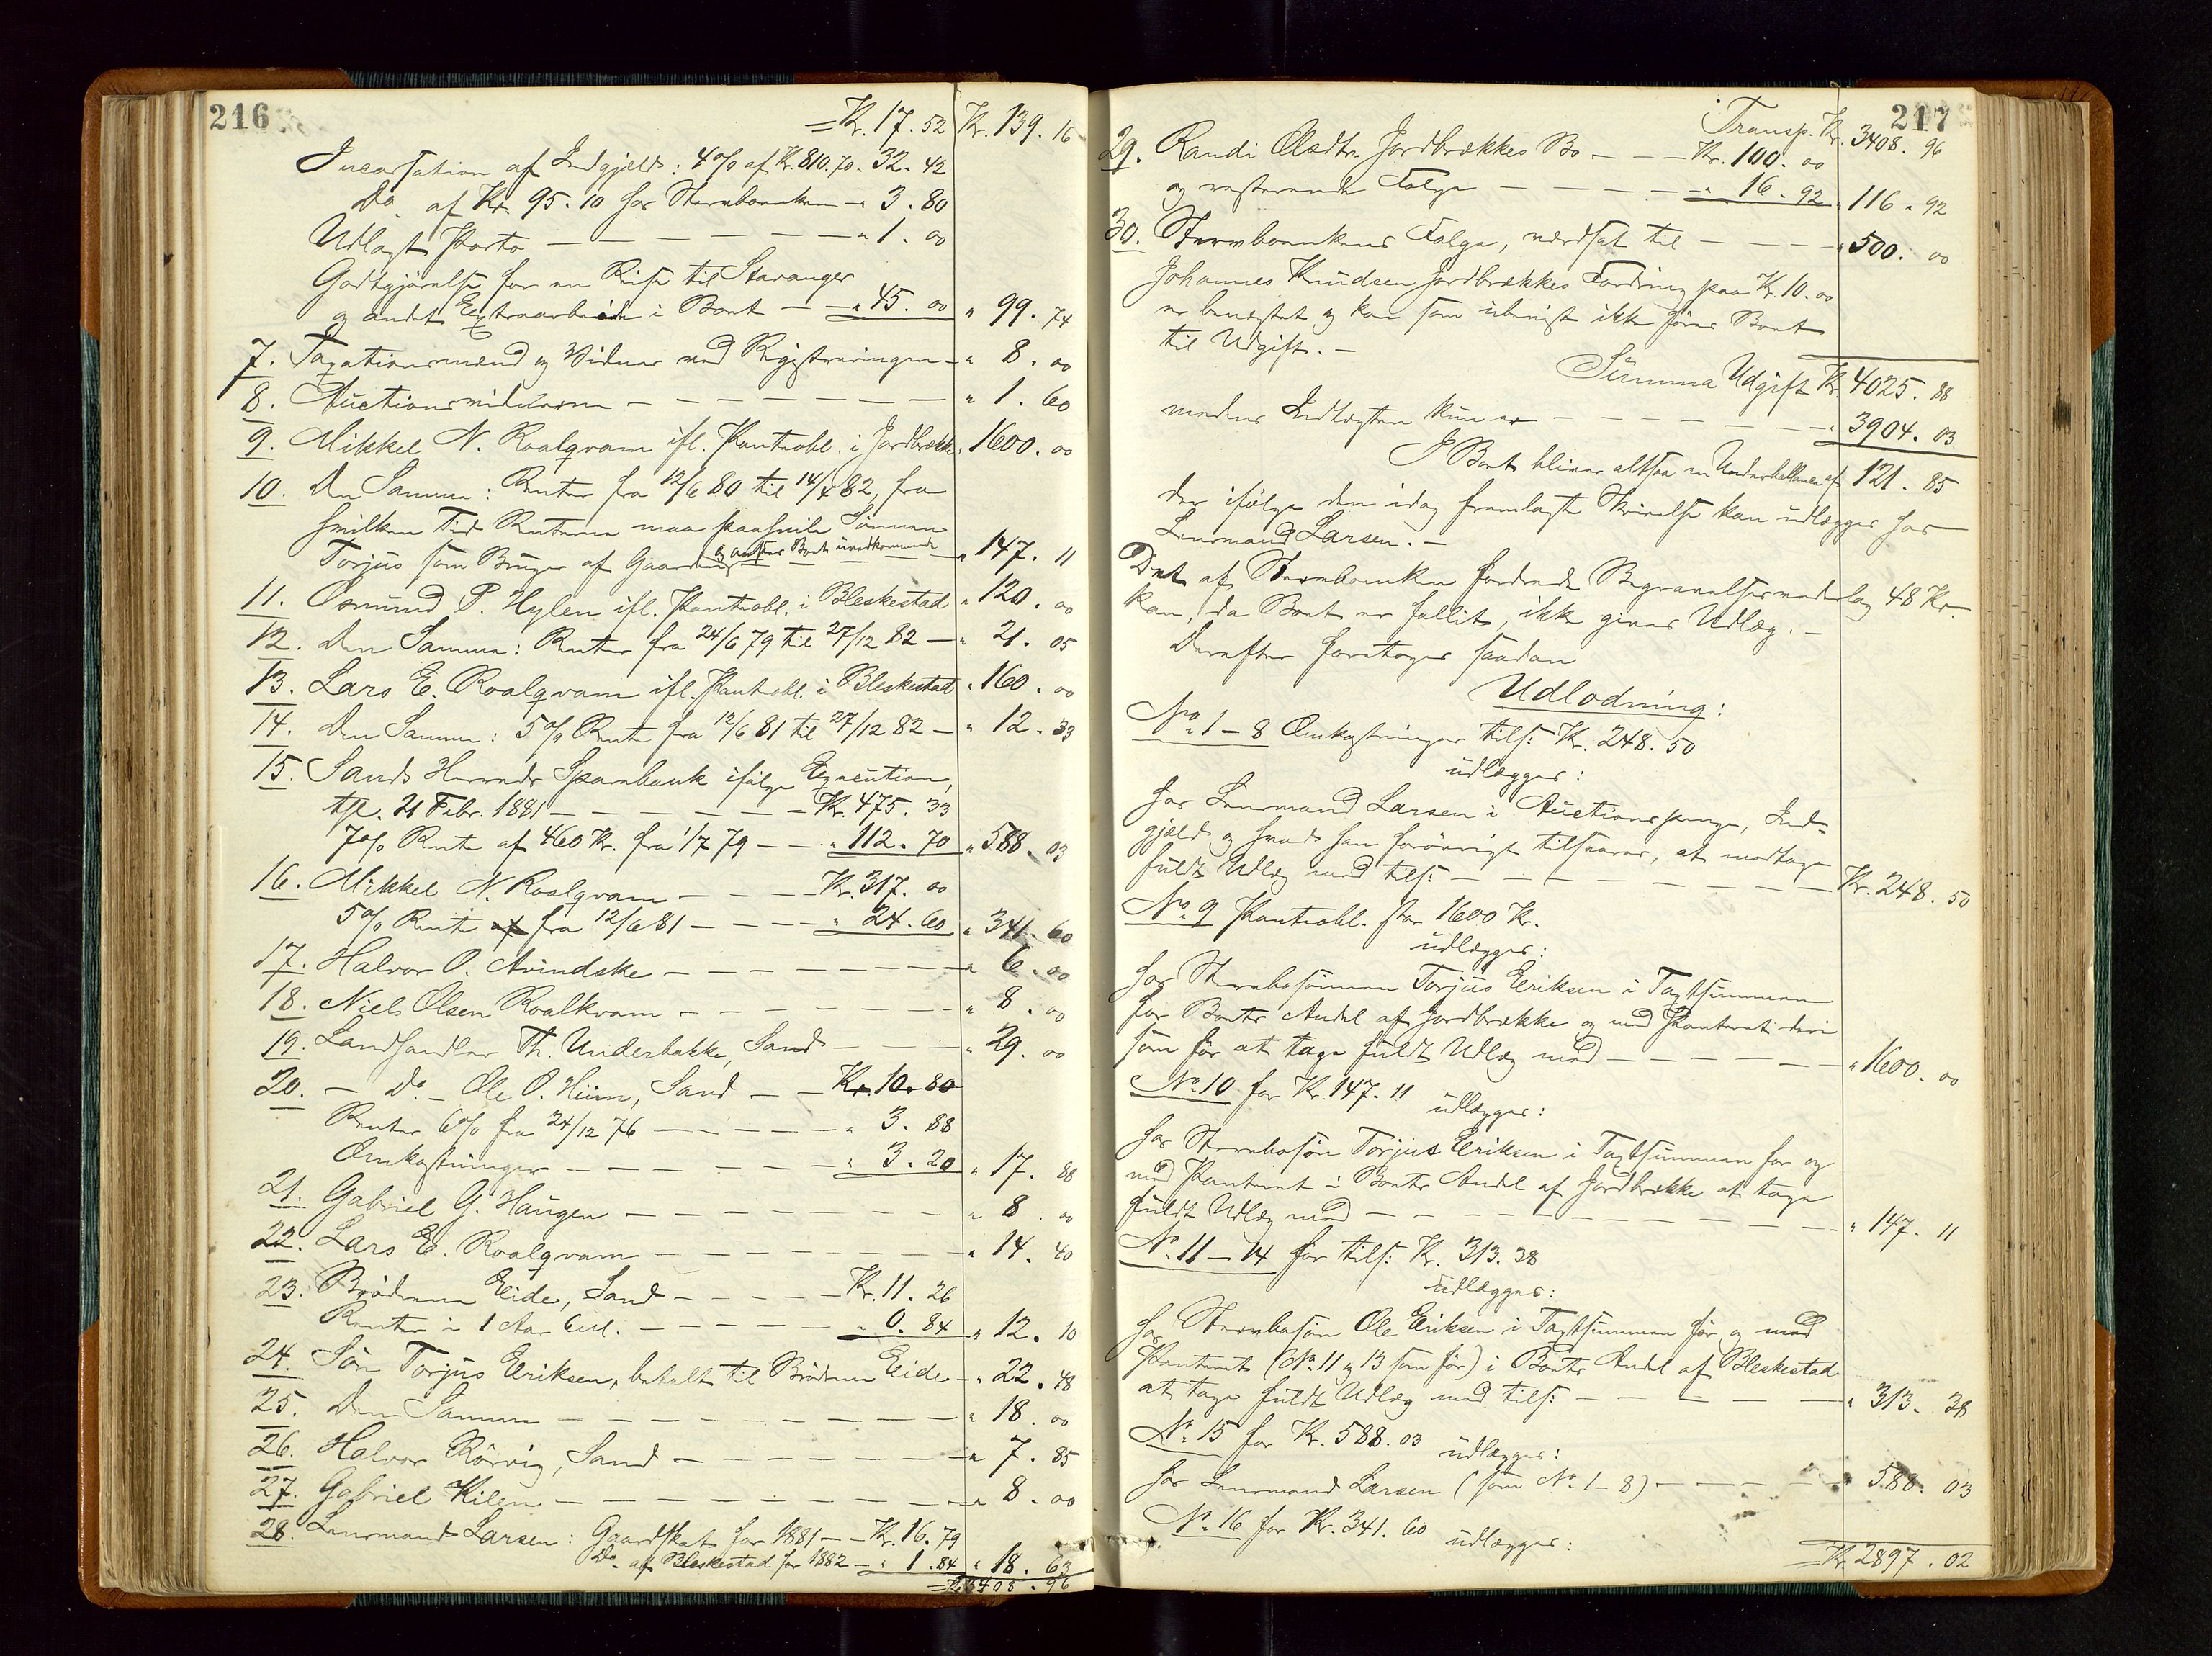 216
= Kr. 17. 52 Kr. 139. 16
Incassation af Indgjæld: 4% af Kr. 810.70. 32. 42
Do. af Kr. 95. 10 hos Stervboenken - " 3. 80
Udlagt Porto — — — — — — " 1. 00
Godtgjørelse for en Reise til Stavanger
og andet Extraarbeide i Boet — — " 45. 00 " 99. 74
7. Taxationsmænd og Vidner ved Registreringen — " 8. 00
8. Auctionsvidnerne — — — — — — — " 1. 60
9. Mikkel N. Roalqvam ifl. Pantobl. i Jordbrække " 1600. 00
10. Den Samme: Renter fra 12/6 80 til 14/4 82, fra
hvilken Tid Renterne maa paahvile Sønnen
Torjus som Bruger af Gaarden og antages Boet uvedkommende — " 147. 11
11. Osmund P. Hylen ifl. Pantobl. i Bleskestad " 120. 00
12. Den Samme: Renter fra 24/6 79 til 27/12 82 — " 21. 05
13. Lars E. Roalqvam ifl. Pantobl. i Bleskestad " 160. 00
14. Den Samme: 5% Rente fra 12/6 81 til 27/12 82 — " 12. 33
15. Sands Herreds Sparebank ifølge Execution,
tgl. 21 Febr. 1881 — — — — — — Kr. 475. 33
7% Rente af 460 Kr. fra 1/7 79 — — " 112. 70 " 588. 03
16. Mikkel N. Roalqvam — — — Kr. 317. 00
5% Rente fra 12/6 81 — — — — " 24. 60 " 341. 60
17. Halvor O. Avindske — — — — — — — " 6. 00
18. Niels Olsen Roalkvam — — — — — — " 8. 00
19. Landhandler Th. Underbakke, Sand — — — " 29. 00
20. — Do. — Ole O. Hiim, Sand — — Kr. 10. 80
Renter 6% fra 24/12 76 — — — — — " 3. 88
Omkostninger — — — — — — — " 3. 20 " 17. 88
21. Gabriel G. Haugen — — — — — — — " 8. 00
22. Lars E. Roalqvam — — — — — — — " 14. 40
23. Brødrene Eide, Sand — — — — — Kr. 11. 26
Renter i 1 Aar — — — — — " 0. 84 " 12. 10
24. Søn Torjus Eriksen, betalt til Brødrene Eide — " 22. 48
25. Den Samme — — — — — — — — " 18. 00
26. Halvor Rørvig, Sand — — — — — — " 7. 85
27. Gabriel Kilen — — — — — — — — " 8. 00
28. Lensmand Larsen: Gaardskat for 1881 — — Kr. 16. 79
Do. af Bleskestad for 1882 — " 1. 84 " 18. 63
= Kr. 3408. 96
217
Transp. Kr. 3408. 96
29. Randi Olsdtr. Jordbrækkes Bo — — — Kr. 100. 00
og resterende Følge — — — — — " 16. 92 " 116. 92
30. Stervboenkens Følge, værdsat til — — — — " 500. 00
Johannes Knudsen Jordbrækkes Fordring paa Kr. 10. 00
er benegtet og kan som ubevist ikke føres Boet
til Udgift. —
Summa Udgift Kr. 4025. 88
medens Indtægten kun er — — — — — — " 3904. 03
I Boet bliver altsaa en Underballance af " 121. 85
der ifølge den idag fremlagte Skrivelse kan udlægges hos
Lensmand Larsen. —
Det af Stervboenken fordrede Begravelsesvederlag 48 Kr.
kan, da Boet er fallit, ikke gives Udlæg. —
Derefter foretoges saadan
Udlodning:
No. 1 – 8 Omkostninger tils: Kr. 248. 50
udlægges:
hos Lensmand Larsen i Auctionspenge, Ind-
gjæld og hvad han forøvrigt tilsvarer, at modtage
fuldt Udlæg med tils: — — — — — — — Kr. 248. 50
No. 9 Pantobl. stor 1600 Kr.
udlægges:
hos Stervbosønnen Torjus Eriksen i Taxtsummen
for Boets Andel af Jordbrække og med Panteret deri
som før at tage fuldt Udlæg med — — — — — " 1600. 00
No. 10 for Kr. 147. 11 udlægges:
hos Stervbosøn Torjus Eriksen i Taxtsummen for og
med Panteret i Boets Andel af Jordbrække at tage
fuldt Udlæg med — — — — — — — — — " 147. 11
No. 11 – 14 for tils: Kr. 313. 38
udlægges:
hos Stervbosøn Ole Eriksen i Taxtsummen for og med
Panteret (No. 11 og 13 som før) i Boets Andel af Bleskestad
at tage fuldt Udlæg med tils: — — — — — " 313. 38
No. 15 for Kr. 588. 03 udlægges:
hos Lensmand Larsen (som No. 1 – 8) — — — — " 588. 03
No. 16 for Kr. 341. 60 udlægges:
= Kr. 2897. 02